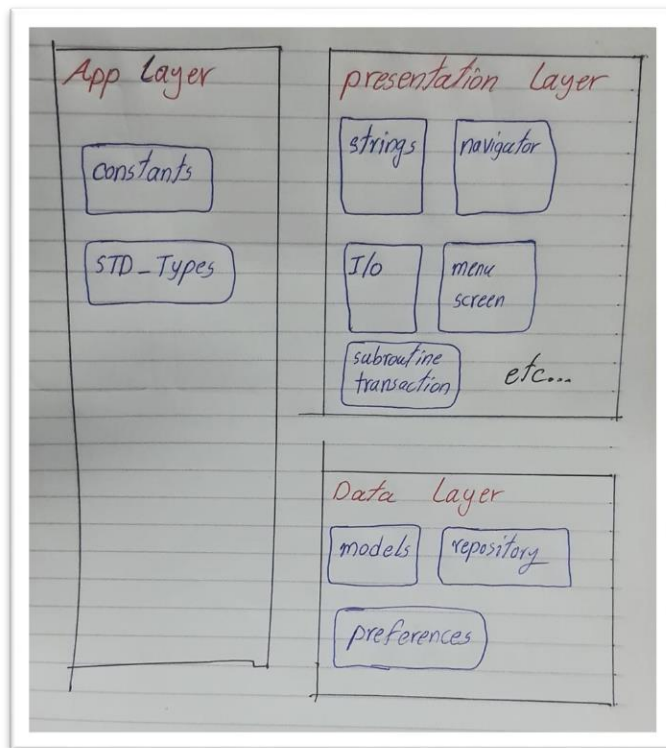 App Layer
constants
STD_Types
presentation Layer
strings
navigator
I/o
menu
screen
subroutine
transaction
etc...
Data Layer
models
repository
preferences